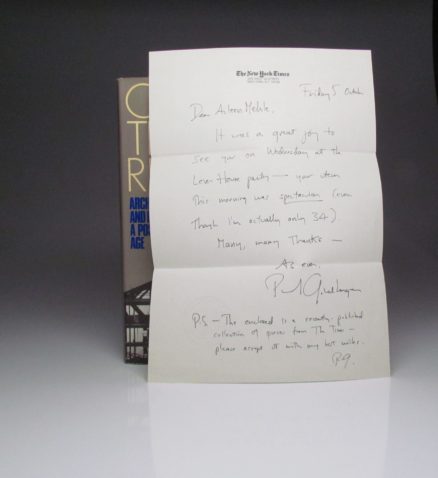 The New York Times
Friday 5 October
Dear Aileen Mehle,
It was a great joy to
see you on Wednesday at the
Lever House party — your item
this morning was spectacular (even
though I'm actually only 34)
Many, many thanks —
As ever,
Paul Goldberger
P.S. — The enclosed is a recently-published
collection of pieces from The Times —
please accept it with my best wishes.
P.G.
O
T
R
ARCH
AND
A POS
AGE